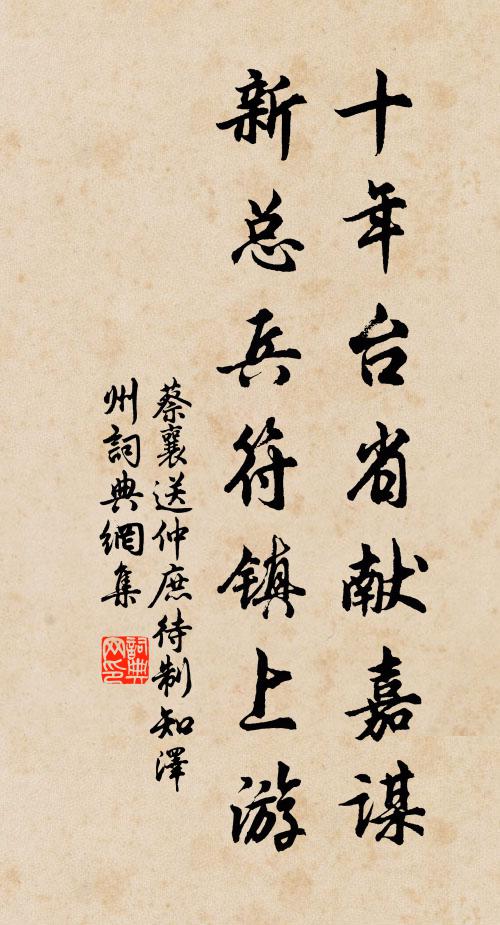 十年台省献嘉谋
新总兵符镇上游
蔡襄送仲庶待制知澤
州詞典網集
詞典網印